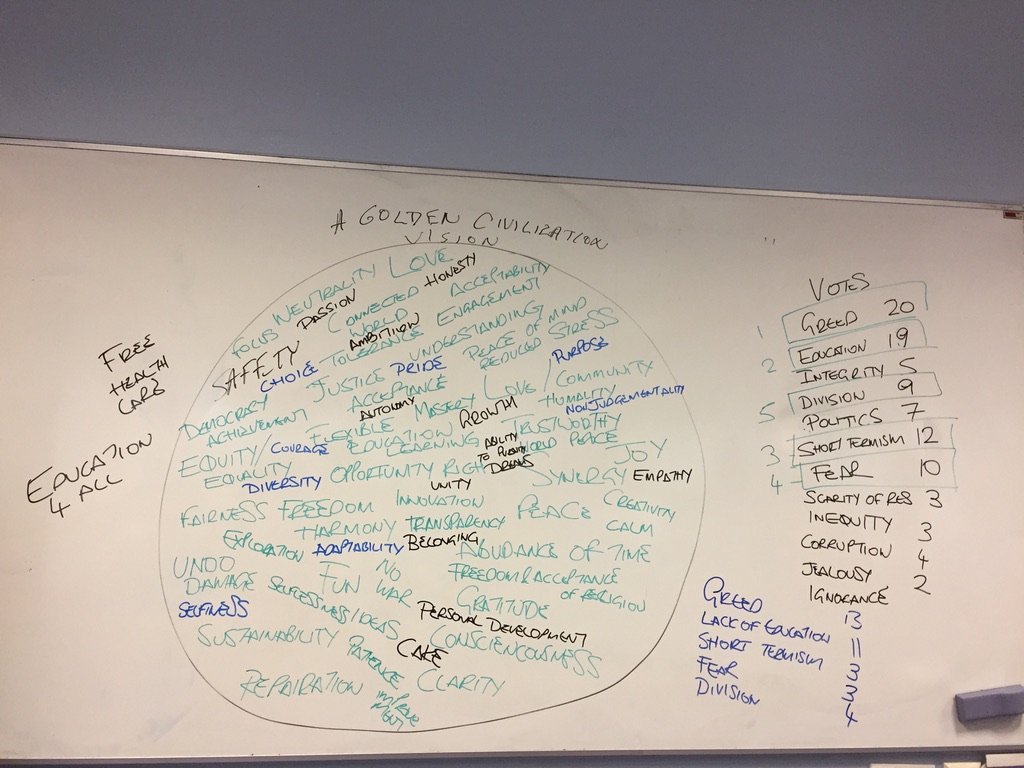 A GOLDEN CIVILISATION
VISION
FREE
HEALTH
CARE
EDUCATION
4 ALL
FOCUS NEUTRALITY LOVE
PASSION
CONNECTED HONESTY
WORLD
ACCEPTABILITY
SAFETY
AMBITION
ENGAGEMENT
CHOICE TOLERANCE
UNDERSTANDING
JUSTICE PRIDE
PEACE OF MIND
REDUCED STRESS
PURPOSE
DEMOCRACY
ACCEPTANCE
LOVE / COMMUNITY
ACHIEVEMENT
AUTONOMY
MASTERY
GROWTH
HUMALITY
NONJUDGEMENTALITY
FLEXIBLE
TRUSTWORTHY
EQUITY/
EQUALITY
COURAGE
EDUCATION
LEARNING
ABILITY
TO PURSUE
DREAMS
WORLD PEACE
JOY
DIVERSITY
OPPORTUNITY RIGHT
UNITY
SYNERGY EMPATHY
FAIRNESS FREEDOM INNOVATION
PEACE
CREATIVITY
CALM
HARMONY TRANSPARENCY
EXPLORATION ADAPTABILITY BELONGING
ABUDANCE OF TIME
UNDO
DAMAGE
FUN
NO
WAR
FREEDOM & ACCEPTANCE
OF RELIGION
SELFINESS
SELFLESSNESS/IDEAS
GRATITUDE
PERSONAL DEVELOPMENT
SUSTAINABILITY
PATIENCE
CAKE
CONSCIENCOUSNESS
REPAIRATION
CLARITY
VOTES
1 GREED 20
2 EDUCATION 19
INTEGRITY 5
5 DIVISION 9
POLITICS 7
3 SHORT TERMISM 12
4 FEAR 10
SCARITY OF RES 3
INEQUITY 3
CORRUPTION 4
JEALOUSY 2
IGNORANCE
GREED 13
LACK OF EDUCATION 11
SHORT TERMISM 3
FEAR 3
DIVISION 4